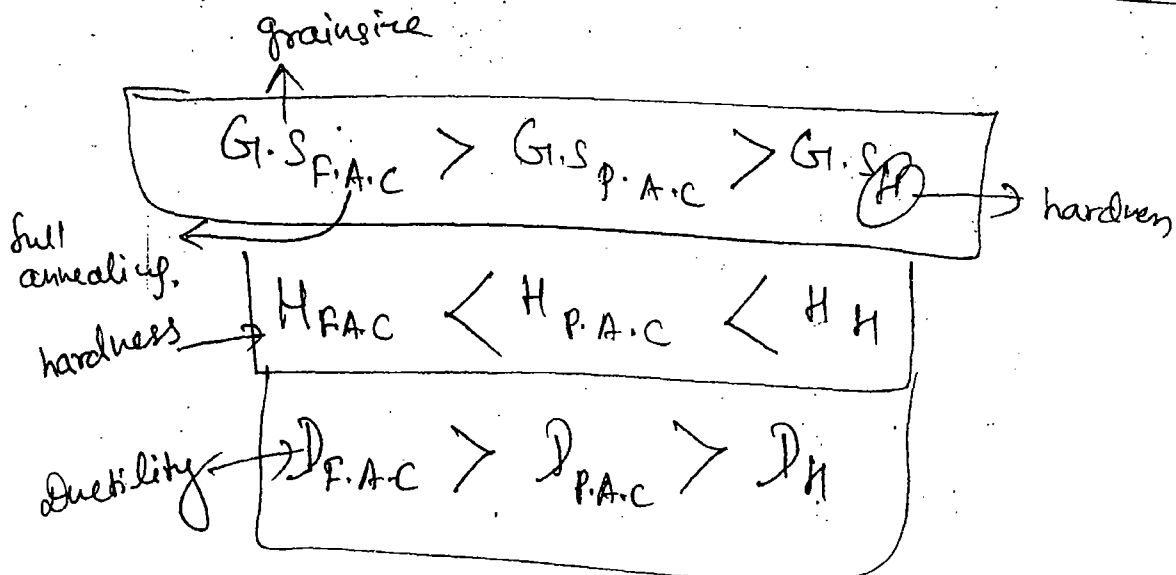 grainsize
G.S F.A.C > G.S P.A.C > G.S H → hardnen
full
annealing.
hardness → H F.A.C < H P.A.C < H H
Ductility D F.A.C > D P.A.C > D H